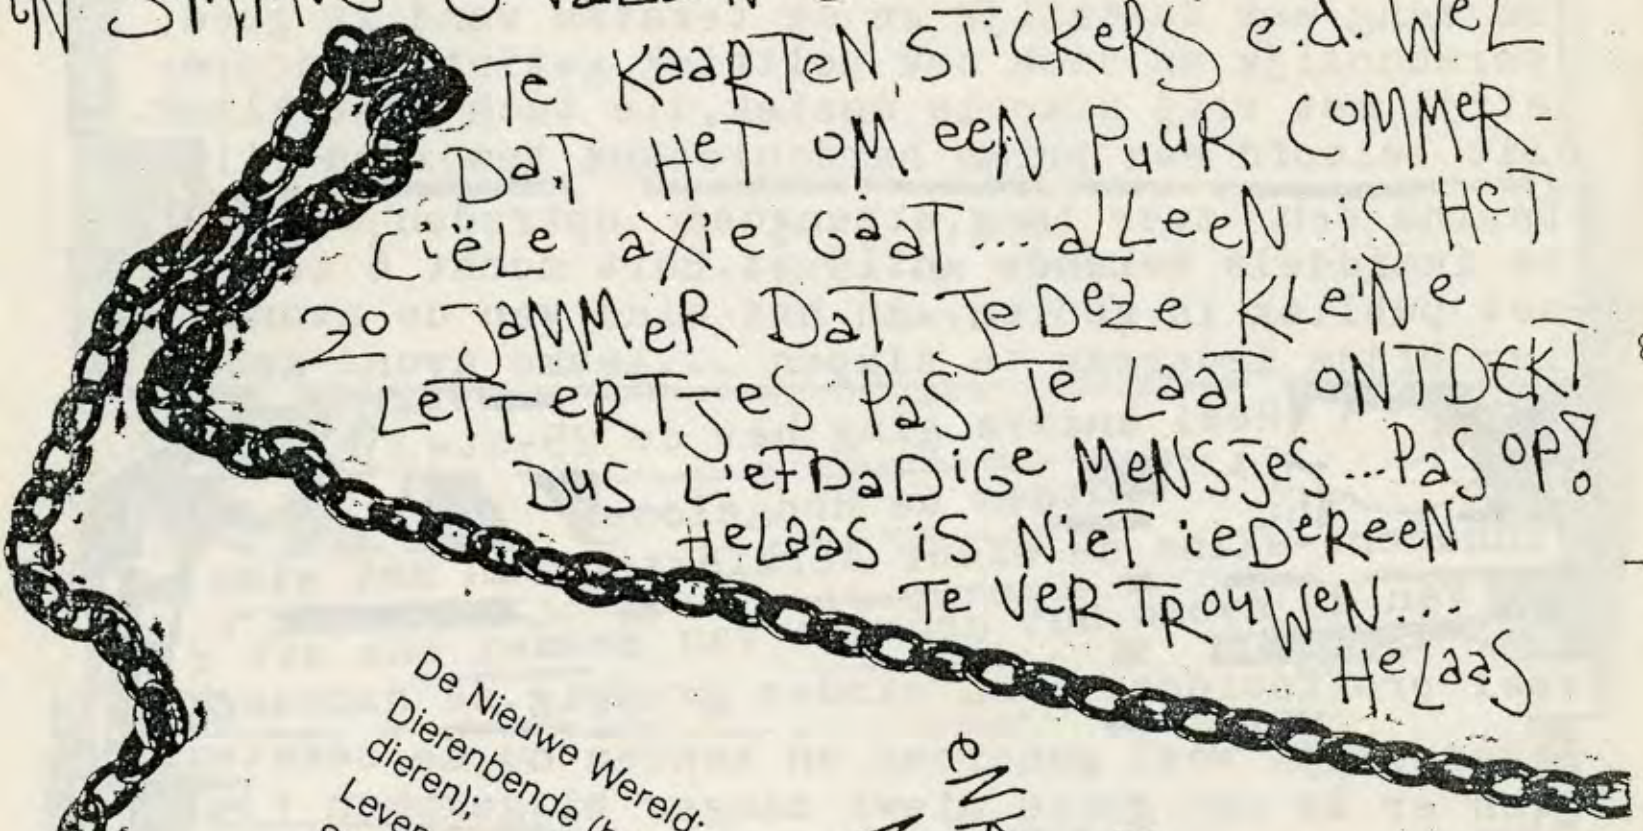 Te KaaRTeN, STiCKeRS e.d. WeL
DaT HeT oM eeN PuuR CoMMeR-
CiëLe aXie GaaT... aLLeeN iS HeT
zo JaMMeR DaT Je Deze KLeiNe
LeTTeRTJeS PaS Te LaaT oNTDeKT
DuS LieFDaDiGe MeNSJeS... PaS oP!
HeLaaS iS NieT ieDeReeN
Te VeRTRouWeN...
HeLaaS
De Nieuwe Wereld:
Dierenbende
dieren);
eN